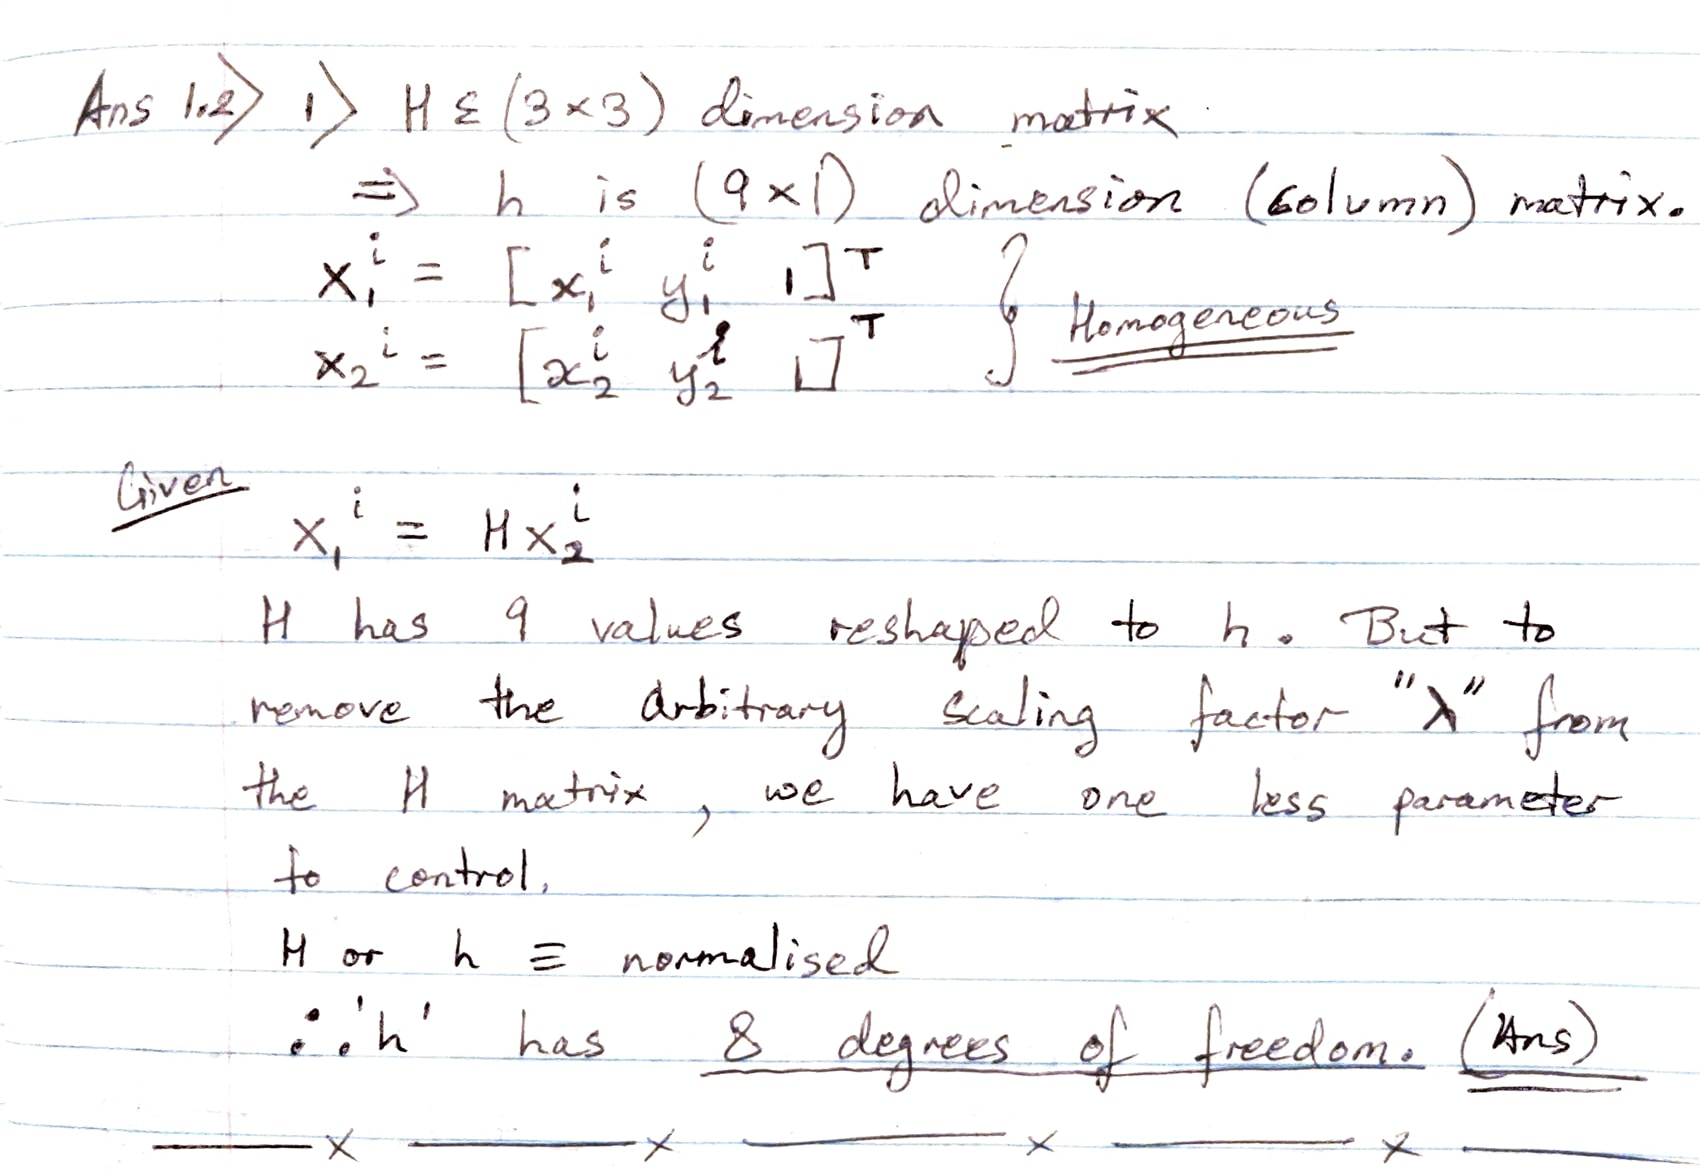 Ans 1.2> 1> H ε (3×3) dimension matrix
⇒ h is (9×1) dimension (column) matrix.
x₁ⁱ = [x₁ⁱ y₁ⁱ 1]ᵀ } Homogeneous
x₂ⁱ = [x₂ⁱ y₂ⁱ 1]ᵀ
Given
x₁ⁱ = Hx₂ⁱ
H has 9 values reshaped to h. But to
remove the arbitrary scaling factor "λ" from
the H matrix, we have one less parameter
to control.
H or h ≡ normalised
∴ 'h' has 8 degrees of freedom. (Ans)
—— x —— x —— x —— x ——